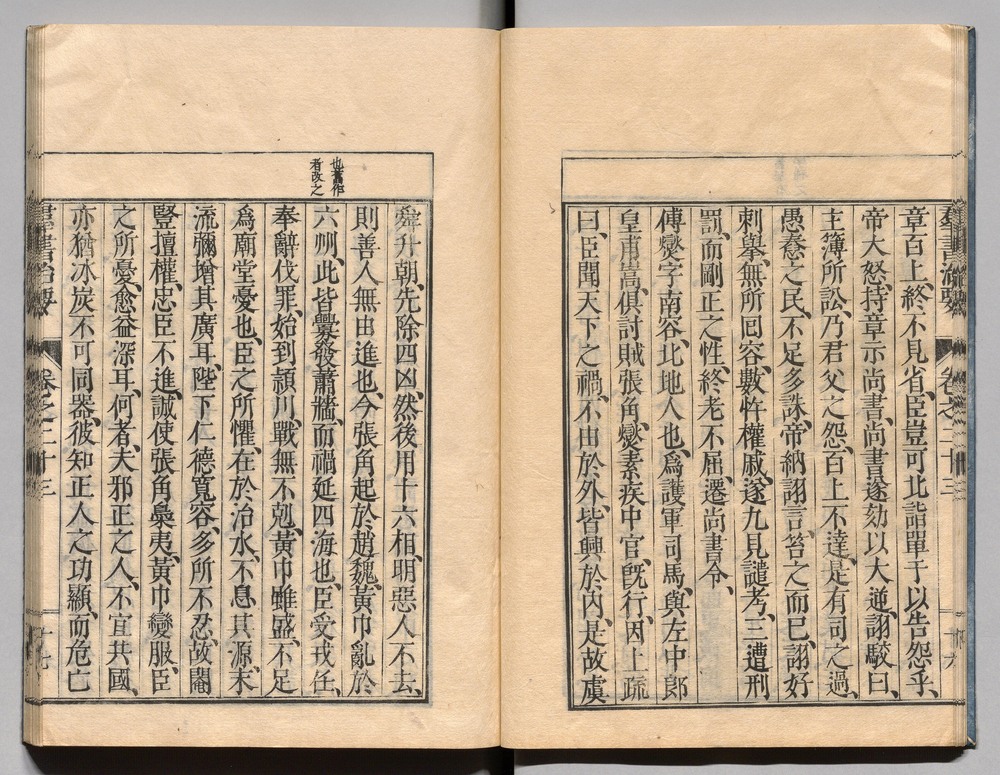 章百上、終不見省、臣豈可北詣單于以告怨乎、
帝大怒、持章示尚書、尚書遂劾以大逆、詡駮曰、
主簿所訟、乃君父之怨、百上不達、是有司之過、
愚惷之民、不足多誅、帝納詡言、笞之而已、詡好
刺擧、無所回容、數忤權戚、遂九見譴考、三遭刑
罰、而剛正之性、終老不屈、遷尚書令、
傅燮字南容、北地人也、爲護軍司馬、與左中郎
皇甫嵩、俱討賊張角、燮素疾中官、旣行、因上疏
曰、臣聞天下之禍、不由於外、皆興於內、是故虞
羣書治要
卷之二十三
十六
也舊作
者改之
舜升朝、先除四凶、然後用十六相、明惡人不去、
則善人無由進也、今張角起於趙魏、黃巾亂於
六州、此皆釁發蕭牆、而禍延四海也、臣受戎任、
奉辭伐罪、始到潁川、戰無不剋、黃巾雖盛、不足
爲廟堂憂也、臣之所懼、在於治水、不息其源、末
流彌增其廣耳、陛下仁德寬容、多所不忍、故閹
豎擅權、忠臣不進、誠使張角梟夷、黃巾變服、臣
之所憂、愈益深耳、何者、夫邪正之人、不宜共國、
亦猶冰炭不可同器、彼知正人之功顯、而危亡
羣書治要
卷之二十三
十七